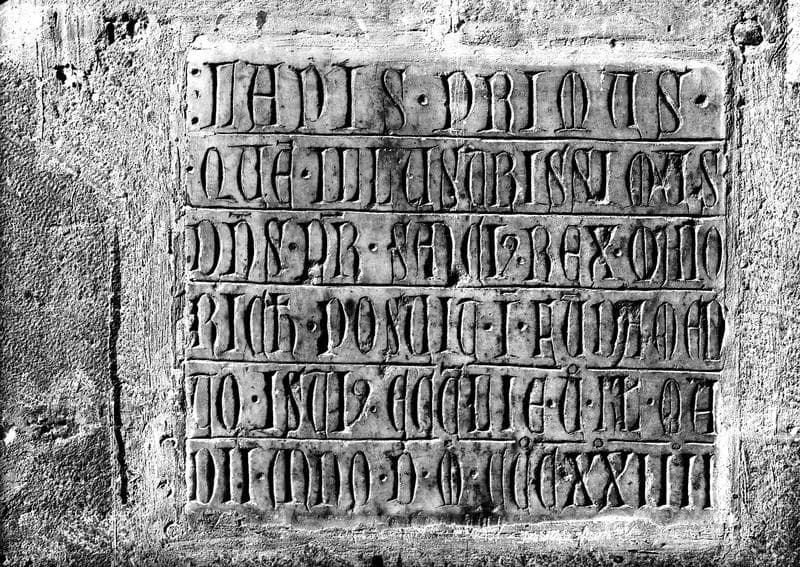 LAPIS · PRIMUS ·
QUĒ · ILLUSTRISSIMUS
DNS NR · SANCIꝰ REX MAIO
RICAꝝ · POSUIT · Ī · FŪDAMEN
TO · ISTIꝰ ECCLIE · V · KL · MA
DII ANNO · D · M · CCCXXIIII